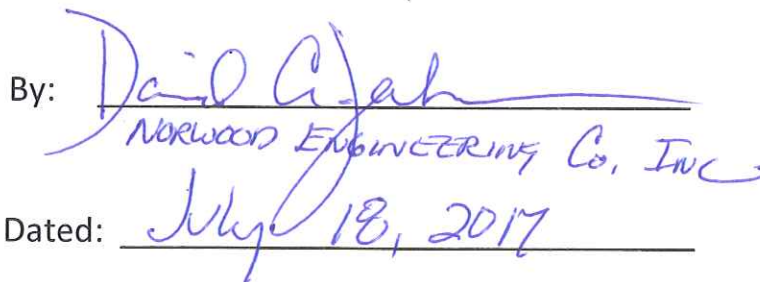 By: David A. Jah
NORWOOD ENGINEERING Co, INC
Dated: July 18, 2017